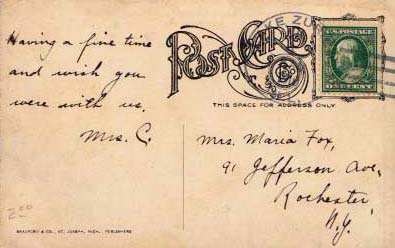 Having a fine time
and wish you
were with us.
Mrs. C.
POST CARD.
THIS SPACE FOR ADDRESS ONLY
U.S. POSTAGE
ONE CENT
Mrs. Maria Fox,
91 Jefferson Ave,
Rochester,
N.Y.
200
BRADFORD & CO., ST. JOSEPH, MICH., PUBLISHERS